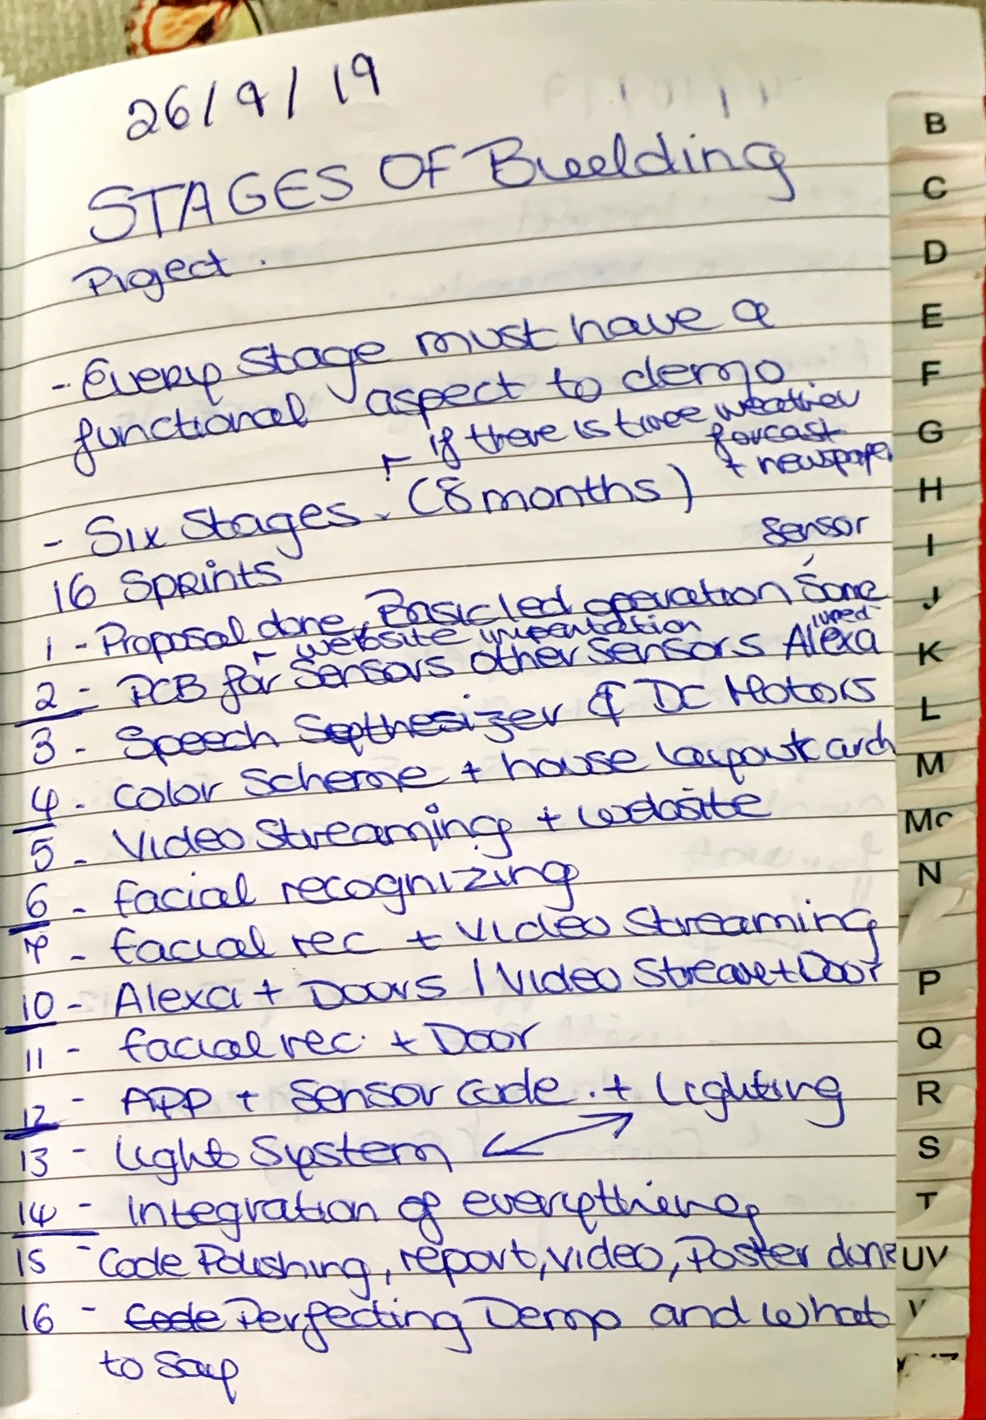 26/9/19
STAGES OF Bueelding
Project.
- Every stage must have a
functional aspect to demo
if there is time weather
forcast
+ newspaper
- Six Stages. (8 months)
16 Sprints
Sensor
1 - Proposal done, Basic led operation Some
website
2 - PCB for Sensors other Sensors Alexa
3 - Speech Septhesizer & DC Motors
4 - Color Scheme + house layout arch
5 - Video Streaming + website
6 - facial recognizing
7 - facial rec + Video Streaming
10 - Alexa + Doors / Video Stream + Door
11 - facial rec. + Door
12 - APP + Sensor code. + Lighting
13 - Light System
14 - Integration of everything
15 - Code Polishing, report, video, Poster done
16 - Code Perfecting Demo and what
to say
B
C
D
E
F
G
H
I
J
K
L
M
Mc
N
P
Q
R
S
T
UV